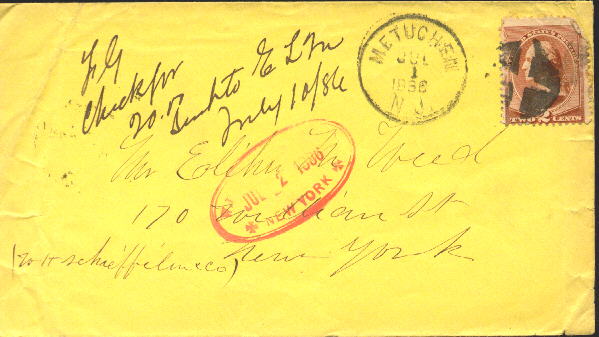 Check for
20.00
Sent to E L M
July 10/86
METUCHEN
JUL
1
1886
N.J.
TWO 2 CENTS
JUL 2 1886
NEW YORK
Mr Elihu M Weed
170 William St
New York
(W H Schieffelin & Co)